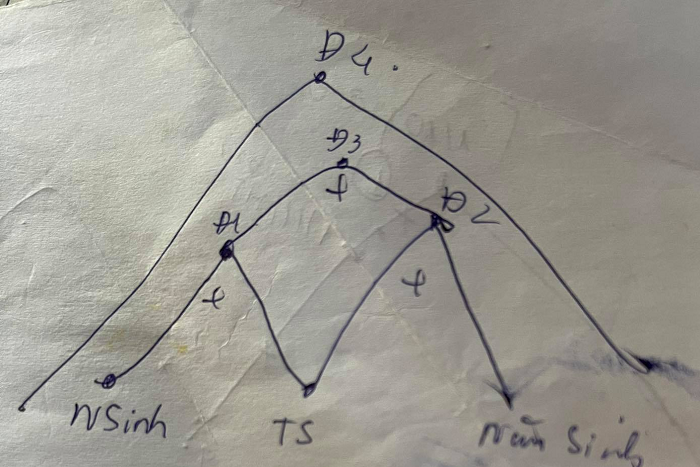 Đ4.
Đ3
+
Đ1
Đ2
+
+
NSinh
TS
Năm Sinh